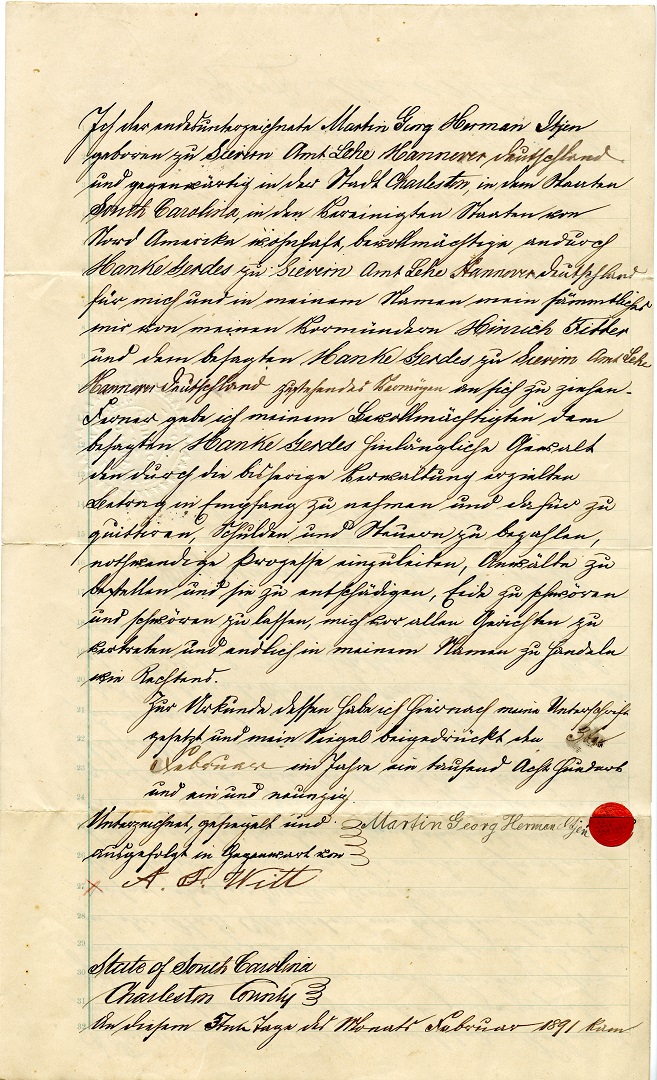 Ich der endesunterzeichnete Martin Georg Herman Itjen
geboren zu Sievern Amt Lehe Hannover Deutschland
und gegenwärtig in der Stadt Charleston, in dem Staaten
South Carolina, in den Vereinigten Staaten von
Nord Amerika wohnhaft, bevollmächtige andurch
Hanke Gerdes zu Sievern Amt Lehe Hannover Deutschland
für mich und in meinem Namen mein sämmtliches
mir von meinen Vormündern Hinrich
und dem besagten Hanke Gerdes zu Sievern Amt Lehe
Hannover Deutschland zustehendes Vermögen an sich zu ziehen.
Ferner gebe ich meinem Bevollmächtigten dem
besagten Hanke Gerdes hinlängliche Gewalt
den durch die bisherige Verwaltung erzielten
Betrag in Empfang zu nehmen und dafür zu
quittiren, Schulden und Steuern zu bezahlen,
nothwendige Prozesse einzuleiten, Anwälte zu
bestellen und sie zu entschädigen, Eide zu schwören
und schwören zu lassen, mich vor allen Gerichten zu
vertreten und endlich in meinem Namen zu handeln
wie Rechtens.
Zur Urkunde dessen habe ich hiernach meine Unterschrift
gesetzt und mein Siegel beigedrückt den
Februar im Jahre ein tausend Acht hundert
und ein und neunzig.
Unterzeichnet, gesiegelt und Martin Georg Herman Itjen
ausgefolgt in Gegenwart von
A. F. Witt
State of South Carolina
Charleston County
An diesem 5ten Tage des Monats Februar 1891 kam